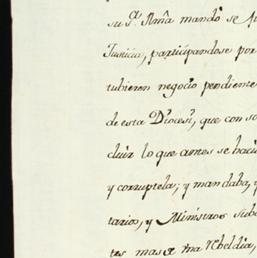 su S.ª Ilmã mandó se
Justicia, participandose por
tubieren negocio pendiente
de esta Diocesi, que con so
cluir lo que antes se haci
y corruptela; y mandaba, y
tarios, y Ministros sub
tes mas a una rebeldia,